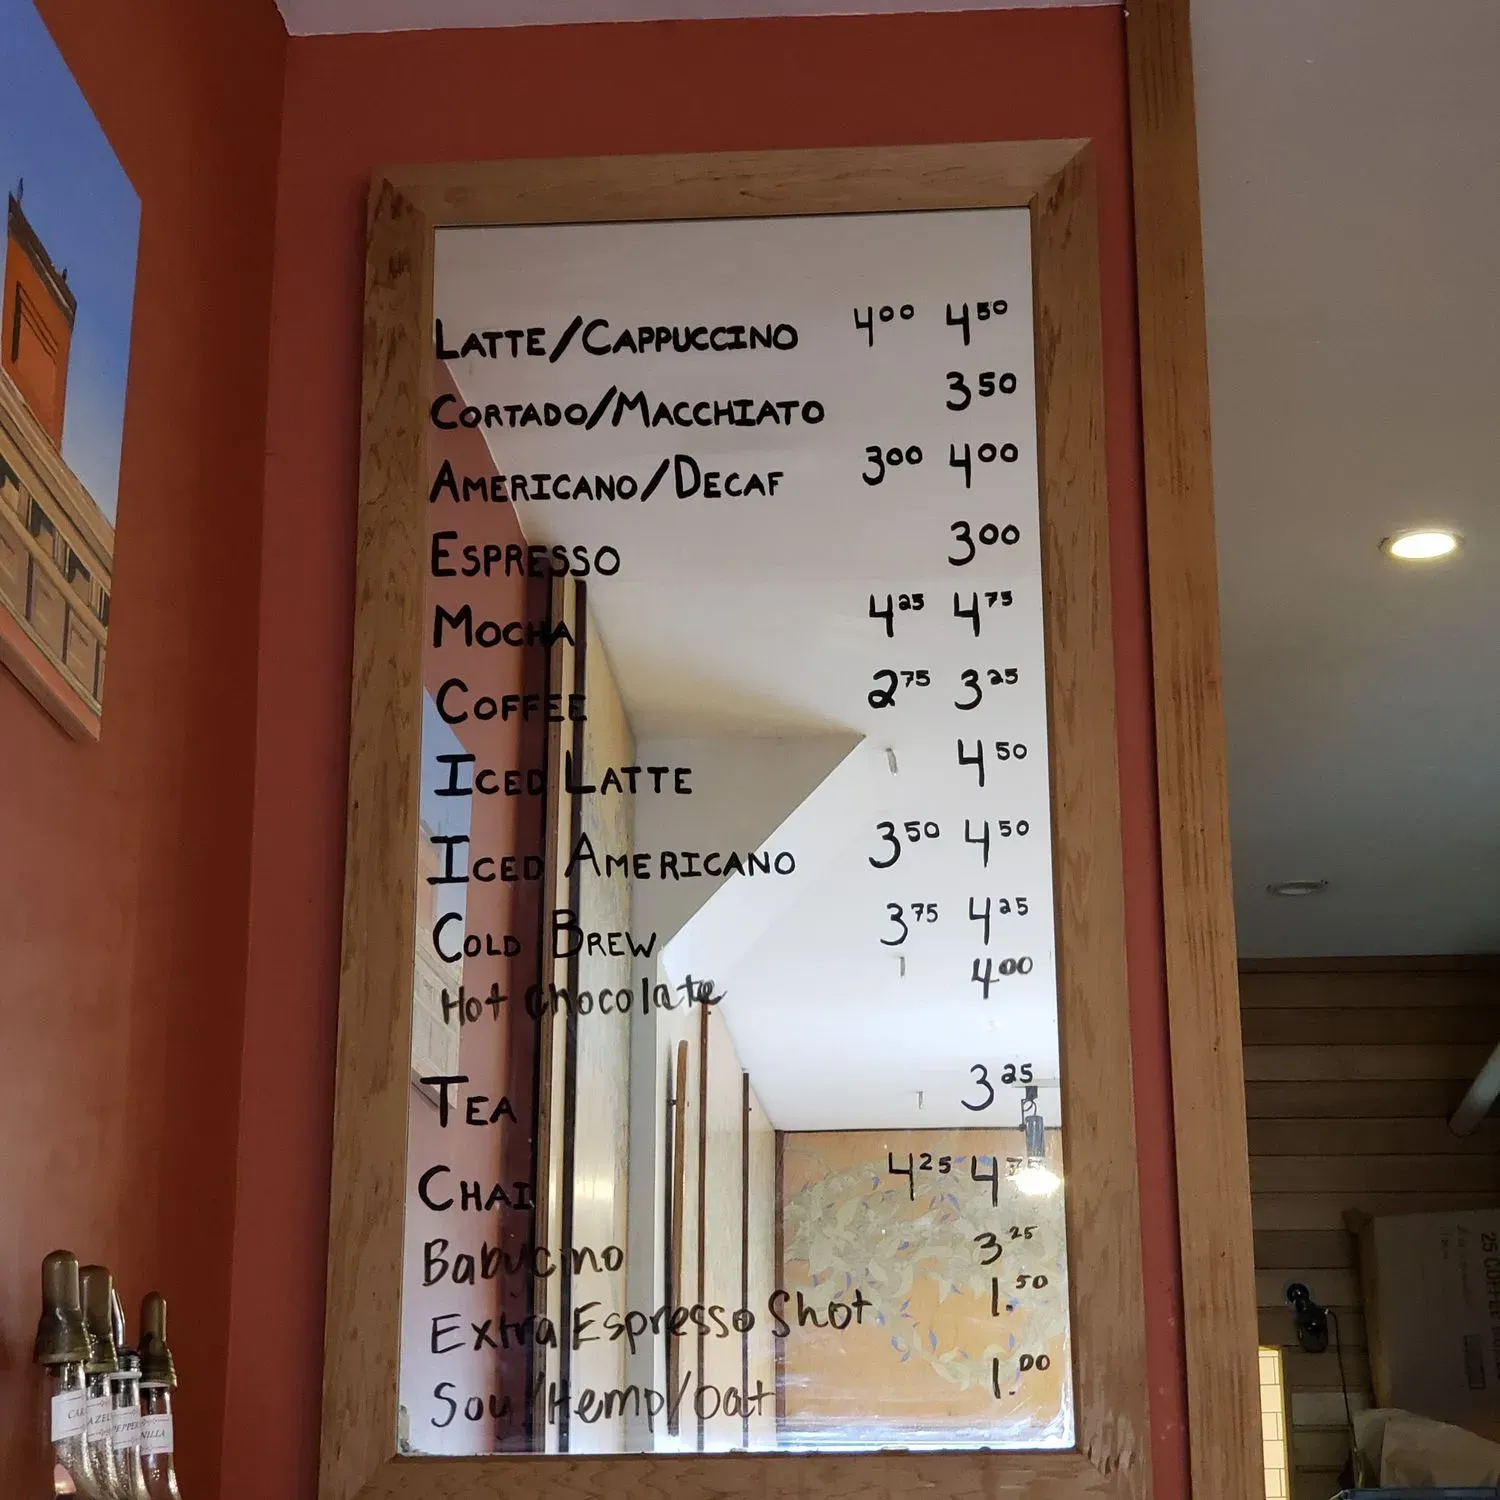 LATTE/CAPPUCCINO 4⁰⁰ 4⁵⁰
CORTADO/MACCHIATO 3⁵⁰
AMERICANO/DECAF 3⁰⁰ 4⁰⁰
ESPRESSO 3⁰⁰
MOCHA 4²⁵ 4⁷⁵
COFFEE 2⁷⁵ 3²⁵
ICED LATTE 4⁵⁰
ICED AMERICANO 3⁵⁰ 4⁵⁰
COLD BREW 3⁷⁵ 4²⁵
Hot Chocolate 4⁰⁰
TEA 3²⁵
CHAI 4²⁵ 4⁷⁵
Babycino 3²⁵
Extra Espresso Shot 1.⁵⁰
Soy/Hemp/Oat 1.⁰⁰
25 COFFEE